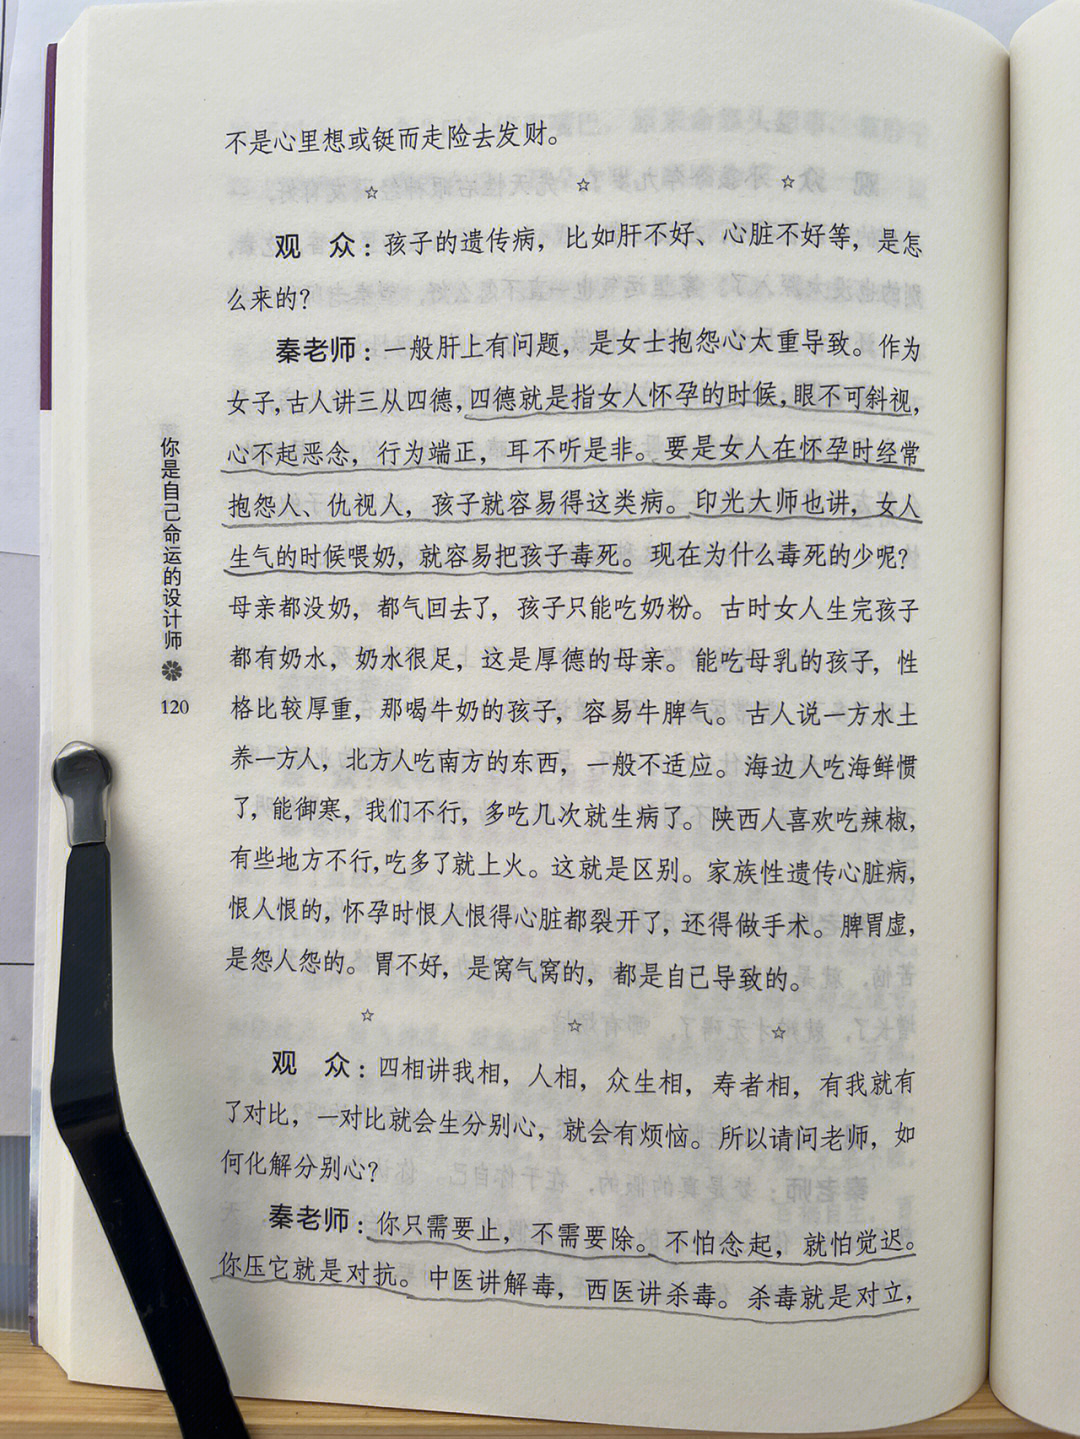 不是心里想或铤而走险去发财。
☆ ☆ ☆
观 众：孩子的遗传病，比如肝不好、心脏不好等，是怎
么来的？
秦老师：一般肝上有问题，是女士抱怨心太重导致。作为
女子，古人讲三从四德，四德就是指女人怀孕的时候，眼不可斜视，
心不起恶念，行为端正，耳不听是非。要是女人在怀孕时经常
抱怨人、仇视人，孩子就容易得这类病。印光大师也讲，女人
生气的时候喂奶，就容易把孩子毒死。现在为什么毒死的少呢？
母亲都没奶，都气回去了，孩子只能吃奶粉。古时女人生完孩子
都有奶水，奶水很足，这是厚德的母亲。能吃母乳的孩子，性
格比较厚重，那喝牛奶的孩子，容易牛脾气。古人说一方水土
养一方人，北方人吃南方的东西，一般不适应。海边人吃海鲜惯
了，能御寒，我们不行，多吃几次就生病了。陕西人喜欢吃辣椒，
有些地方不行，吃多了就上火。这就是区别。家族性遗传心脏病，
恨人恨的，怀孕时恨人恨得心脏都裂开了，还得做手术。脾胃虚，
是怨人怨的。胃不好，是窝气窝的，都是自己导致的。
☆ ☆ ☆
观 众：四相讲我相，人相，众生相，寿者相，有我就有
了对比，一对比就会生分别心，就会有烦恼。所以请问老师，如
何化解分别心？
秦老师：你只需要止，不需要除。不怕念起，就怕觉迟。
你压它就是对抗。中医讲解毒，西医讲杀毒。杀毒就是对立，
你是自己命运的设计师
120